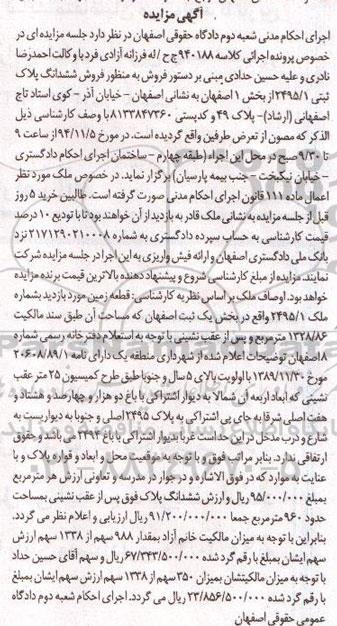 آگهی مزایده
اجرای احکام مدنی شعبه دوم دادگاه حقوقی اصفهان در نظر دارد جلسه مزایده ای در
خصوص پرونده اجرائی کلاسه ۹۴۰۱۸۸ ج ح / له فرزانه آزادی فرد با وکالت احمدرضا
نادری و علیه حسین حدادی مبنی بر دستور فروش به منظور فروش ششدانگ پلاک
ثبتی ۲۴۹۵/۱ از بخش ۱ اصفهان به نشانی اصفهان - خیابان آذر - کوی استاد تاج
اصفهانی (ارشاد)- پلاک ۴۹ و کدپستی ۸۱۳۳۸۴۷۳۶۰ با وصف کارشناسی ذیل
الذکر که مصون از تعرض طرفین واقع گردیده است. در مورخ ۹۴/۱۱/۵ از ساعت ۹
تا ۹/۳۰ صبح در محل این اجراء (طبقه چهارم - ساختمان اجرای احکام دادگستری
- خیابان نیکبخت - جنب بیمه پارسیان) برگزار نماید. در خصوص ملک مورد نظر
اعمال ماده ۱۱۱ قانون اجرای احکام مدنی صورت گرفته است. طالبین خرید ۵ روز
قبل از جلسه مزایده به نشانی ملک قادر به بازدید از آن خواهند بود تا با تودیع ۱۰ درصد
قیمت کارشناسی به حساب سپرده دادگستری به شماره ۲۱۷۱۲۹۰۲۱۰۰۰۸ نزد
بانک ملی دادگستری اصفهان و ارائه فیش واریزی به این اجرا در جلسه مزایده شرکت
نمایند. مزایده از مبلغ کارشناسی شروع و پیشنهاد دهنده بالاترین قیمت برنده مزایده
خواهد بود. اوصاف ملک بر اساس نظریه کارشناسی: قطعه زمین مورد بازدید بشماره
ملک ۲۴۹۵/۱ واقع در بخش یک ثبت اصفهان که مساحت آن طبق سند مالکیت
۱۳۲۸/۸۶ مترمربع و پس از عقب نشینی با توجه به استعلام دفترخانه رسمی شماره
۸ اصفهان توضیحات اعلام شده از شهرداری منطقه یک دارای نامه ۲۰۶۰۸/۸۹/۱
مورخ ۱۳۸۹/۱۱/۳۰ با اولویت بالای ۵ سال و جنوبا طبق طرح کمیسیون ۲۵ متر عقب
نشینی که ابعاد اربعه آن شمالا به دیوار اشتراکی با باغ دو هزار و چهارصد و هشتاد و
هفت اصلی شرقا به جای پی اشتراکی به پلاک ۲۴۹۵ اصلی و جنوبا به دیواریست به
شارع و درب مدخل در این حد است غربا بدیوار اشتراکی با باغ ۲۴۹۴ می باشد و حقوق
ارتفاقی ندارد. بنابر مراتب فوق و با توجه به موقعیت محل و ابعاد و قواره پلاک و با
عنایت به موارد که در فوق الاشاره و در جوار در مدرسه و تعاونی ارزش هر مترمربع
بمبلغ ۹۵/۰۰۰/۰۰۰ ریال و ارزش ششدانگ پلاک فوق پس از عقب نشینی بمساحت
حدود ۹۶۰ مترمربع جمعا ۹۱/۲۰۰/۰۰۰/۰۰۰ ریال ارزیابی و اعلام نظر می گردد.
بنابراین با توجه به میزان مالکیت خانم آزاد بمقدار ۹۸۸ سهم از ۱۳۳۸ سهم ارزش
سهم ایشان بمبلغ با رقم گرد شده ۶۷/۳۴۳/۵۰۰/۰۰۰ ریال و سهم آقای حسین حداد
با توجه به میزان مالکیتشان بمیزان ۳۵۰ سهم از ۱۳۳۸ سهم ارزش سهم ایشان بمبلغ
با رقم گرد شده ۲۳/۸۵۶/۵۰۰/۰۰۰ ریال می گردد. اجرای احکام شعبه دوم دادگاه
عمومی حقوقی اصفهان